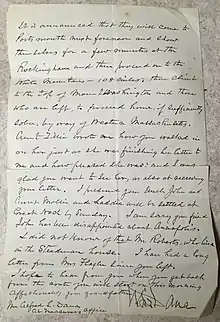 It is announced that they will come to
Portsmouth next forenoon and show
themselves for a few minutes at the
Rockingham and then proceed on to the
White Mountains 109 miles, then climb
to the top of Mount Washington and those
who are left, to proceed home, if sufficiently
sober, by way of Western Massachusetts.
Aunt Lillie wrote me how you walked in
on her just as she was finishing her letter to
me and how pleased she was: and I am
glad you went to see her, as also at receiving
your letter. I presume you with John and
Aunt Mollie and Laddie will be settled at
Great Neck by Sunday. I am sorry you find
John has been disappointed about
I did not know of the Mr. Roberts, who lived
in the Steadman house. I have had a long
letter from Mrs Taylor since you left.
I hope to hear from you when you get back
from the route you will start on this morning
Affectionately your grandfather
Mr. Alfred C. Davis
at Treasurer's Office